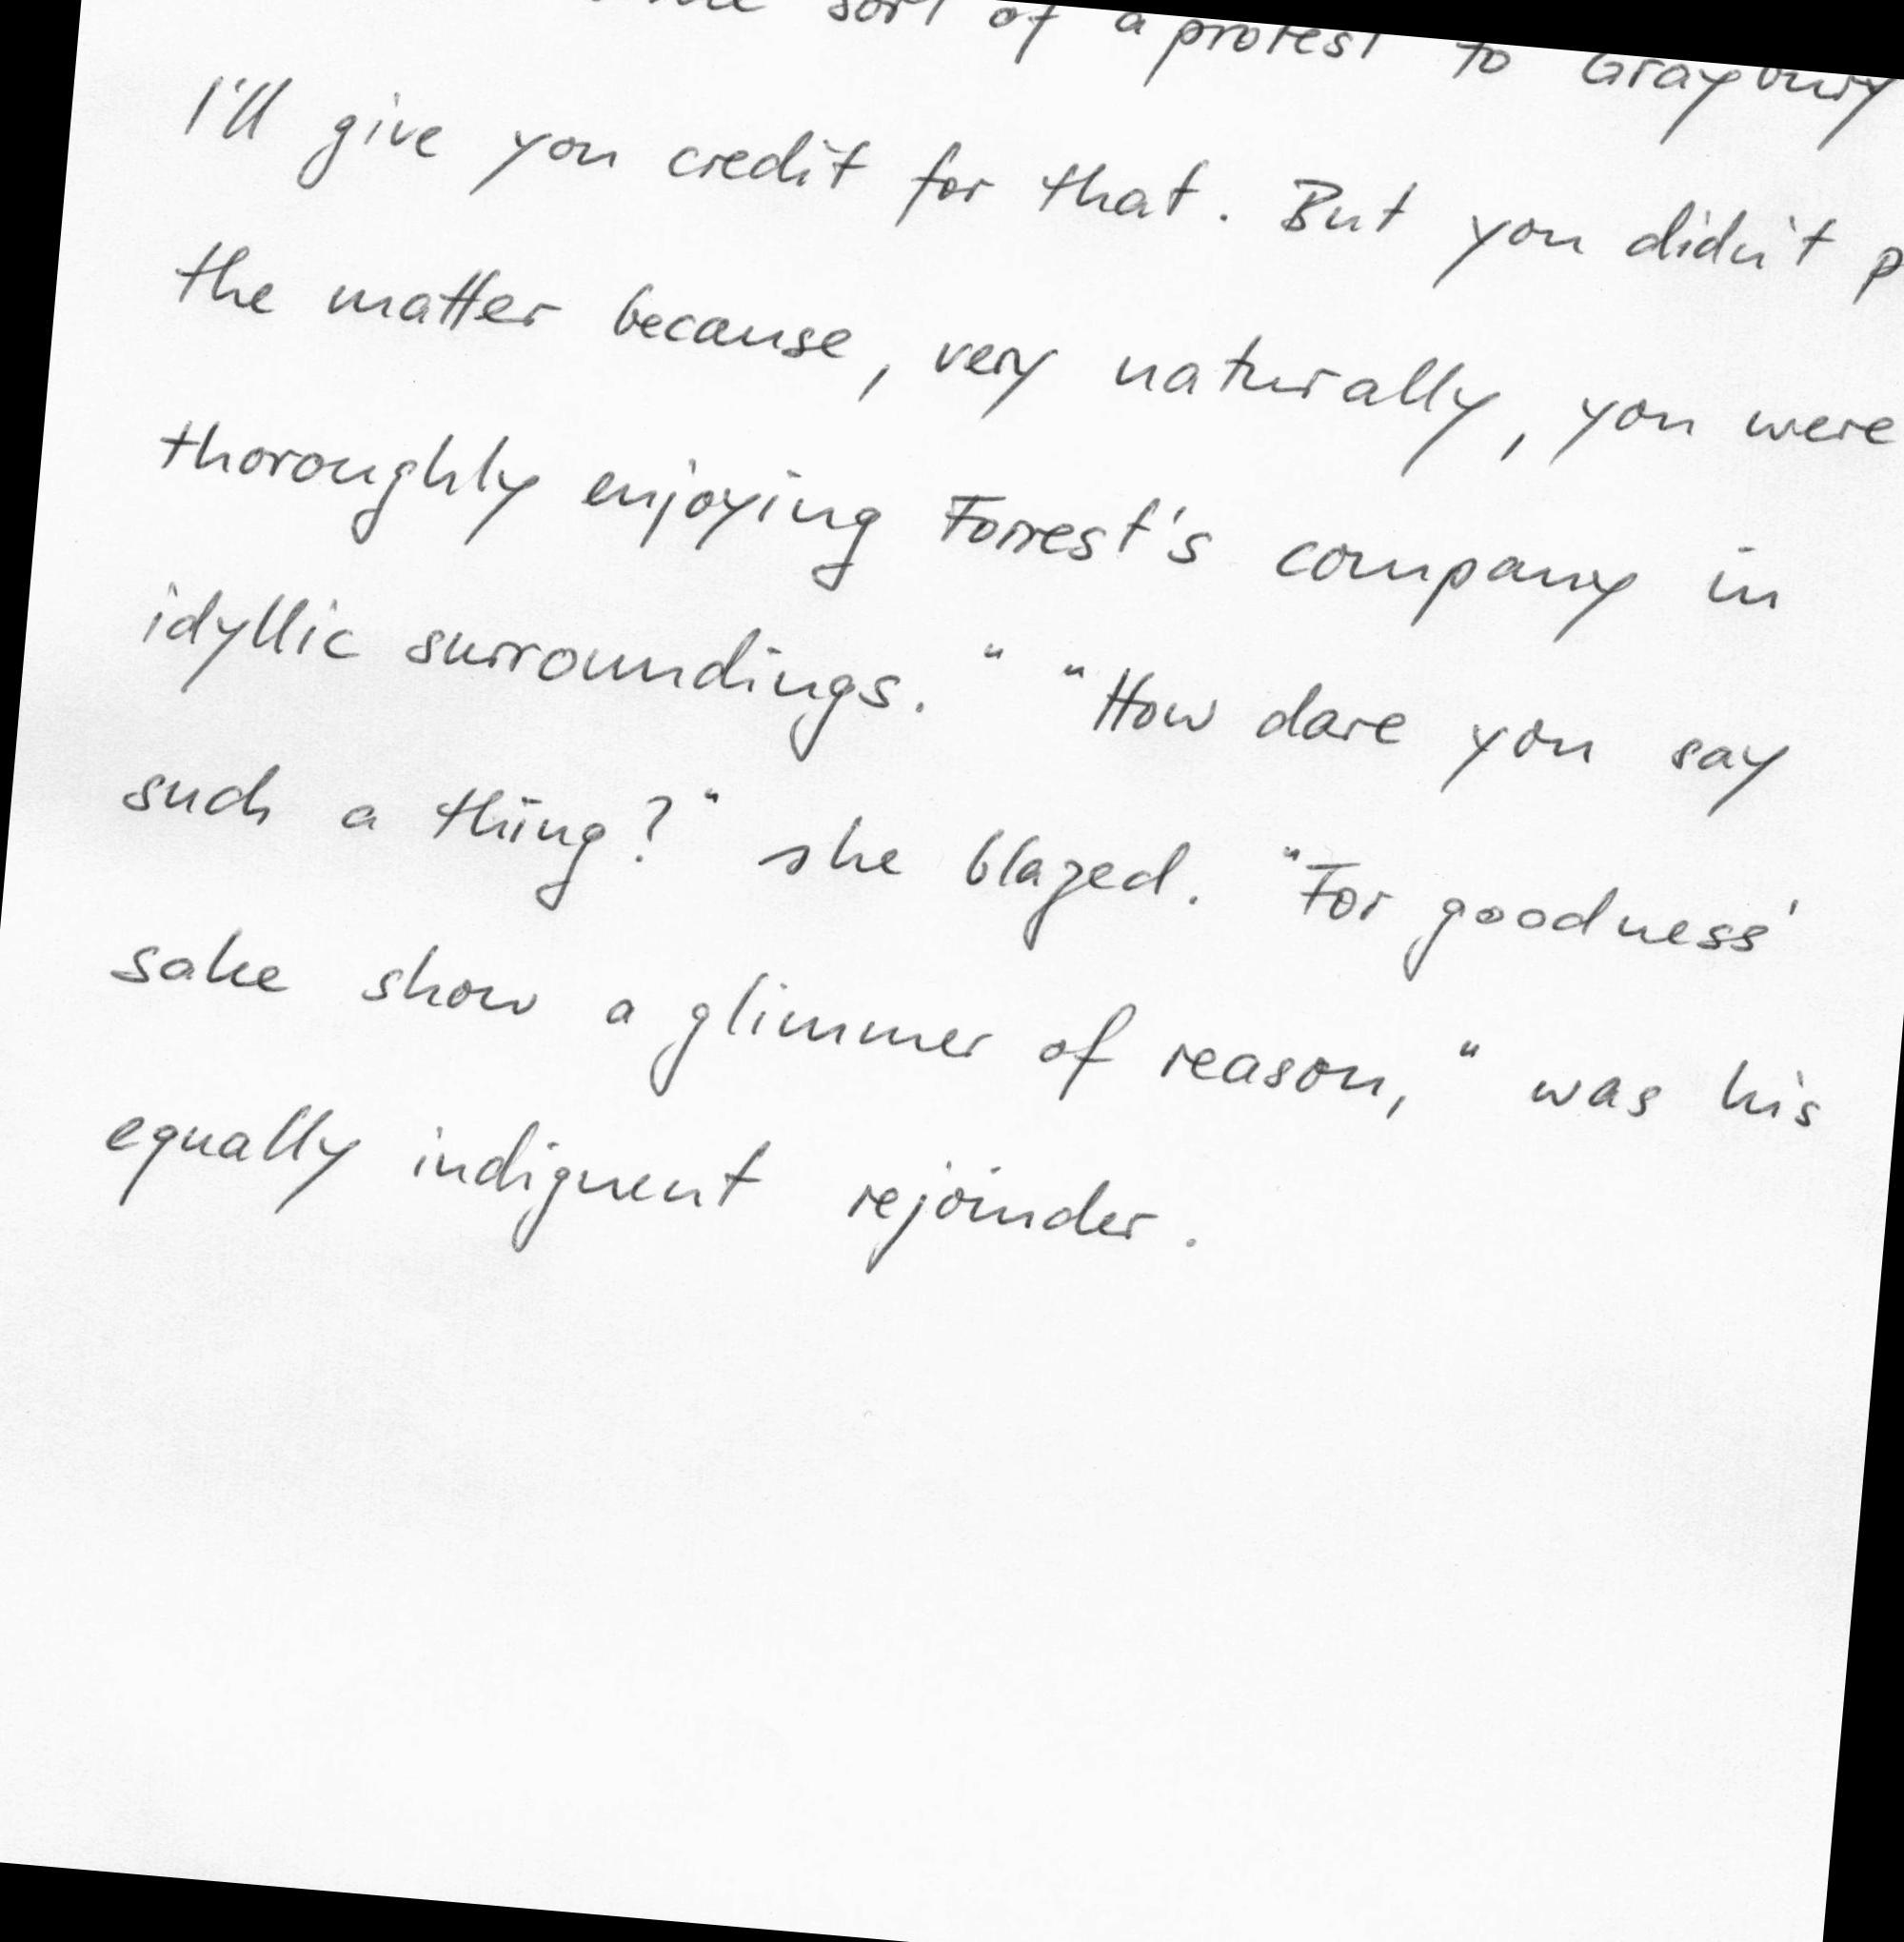 sort of a protest to Graybury
I'll give you credit for that. But you didn't
the matter because, very naturally, you were
thoroughly enjoying Forrest's company in
idyllic surroundings." "How dare you say
such a thing?" she blazed. "For goodness'
sake show a glimmer of reason," was his
equally indignent rejoinder.